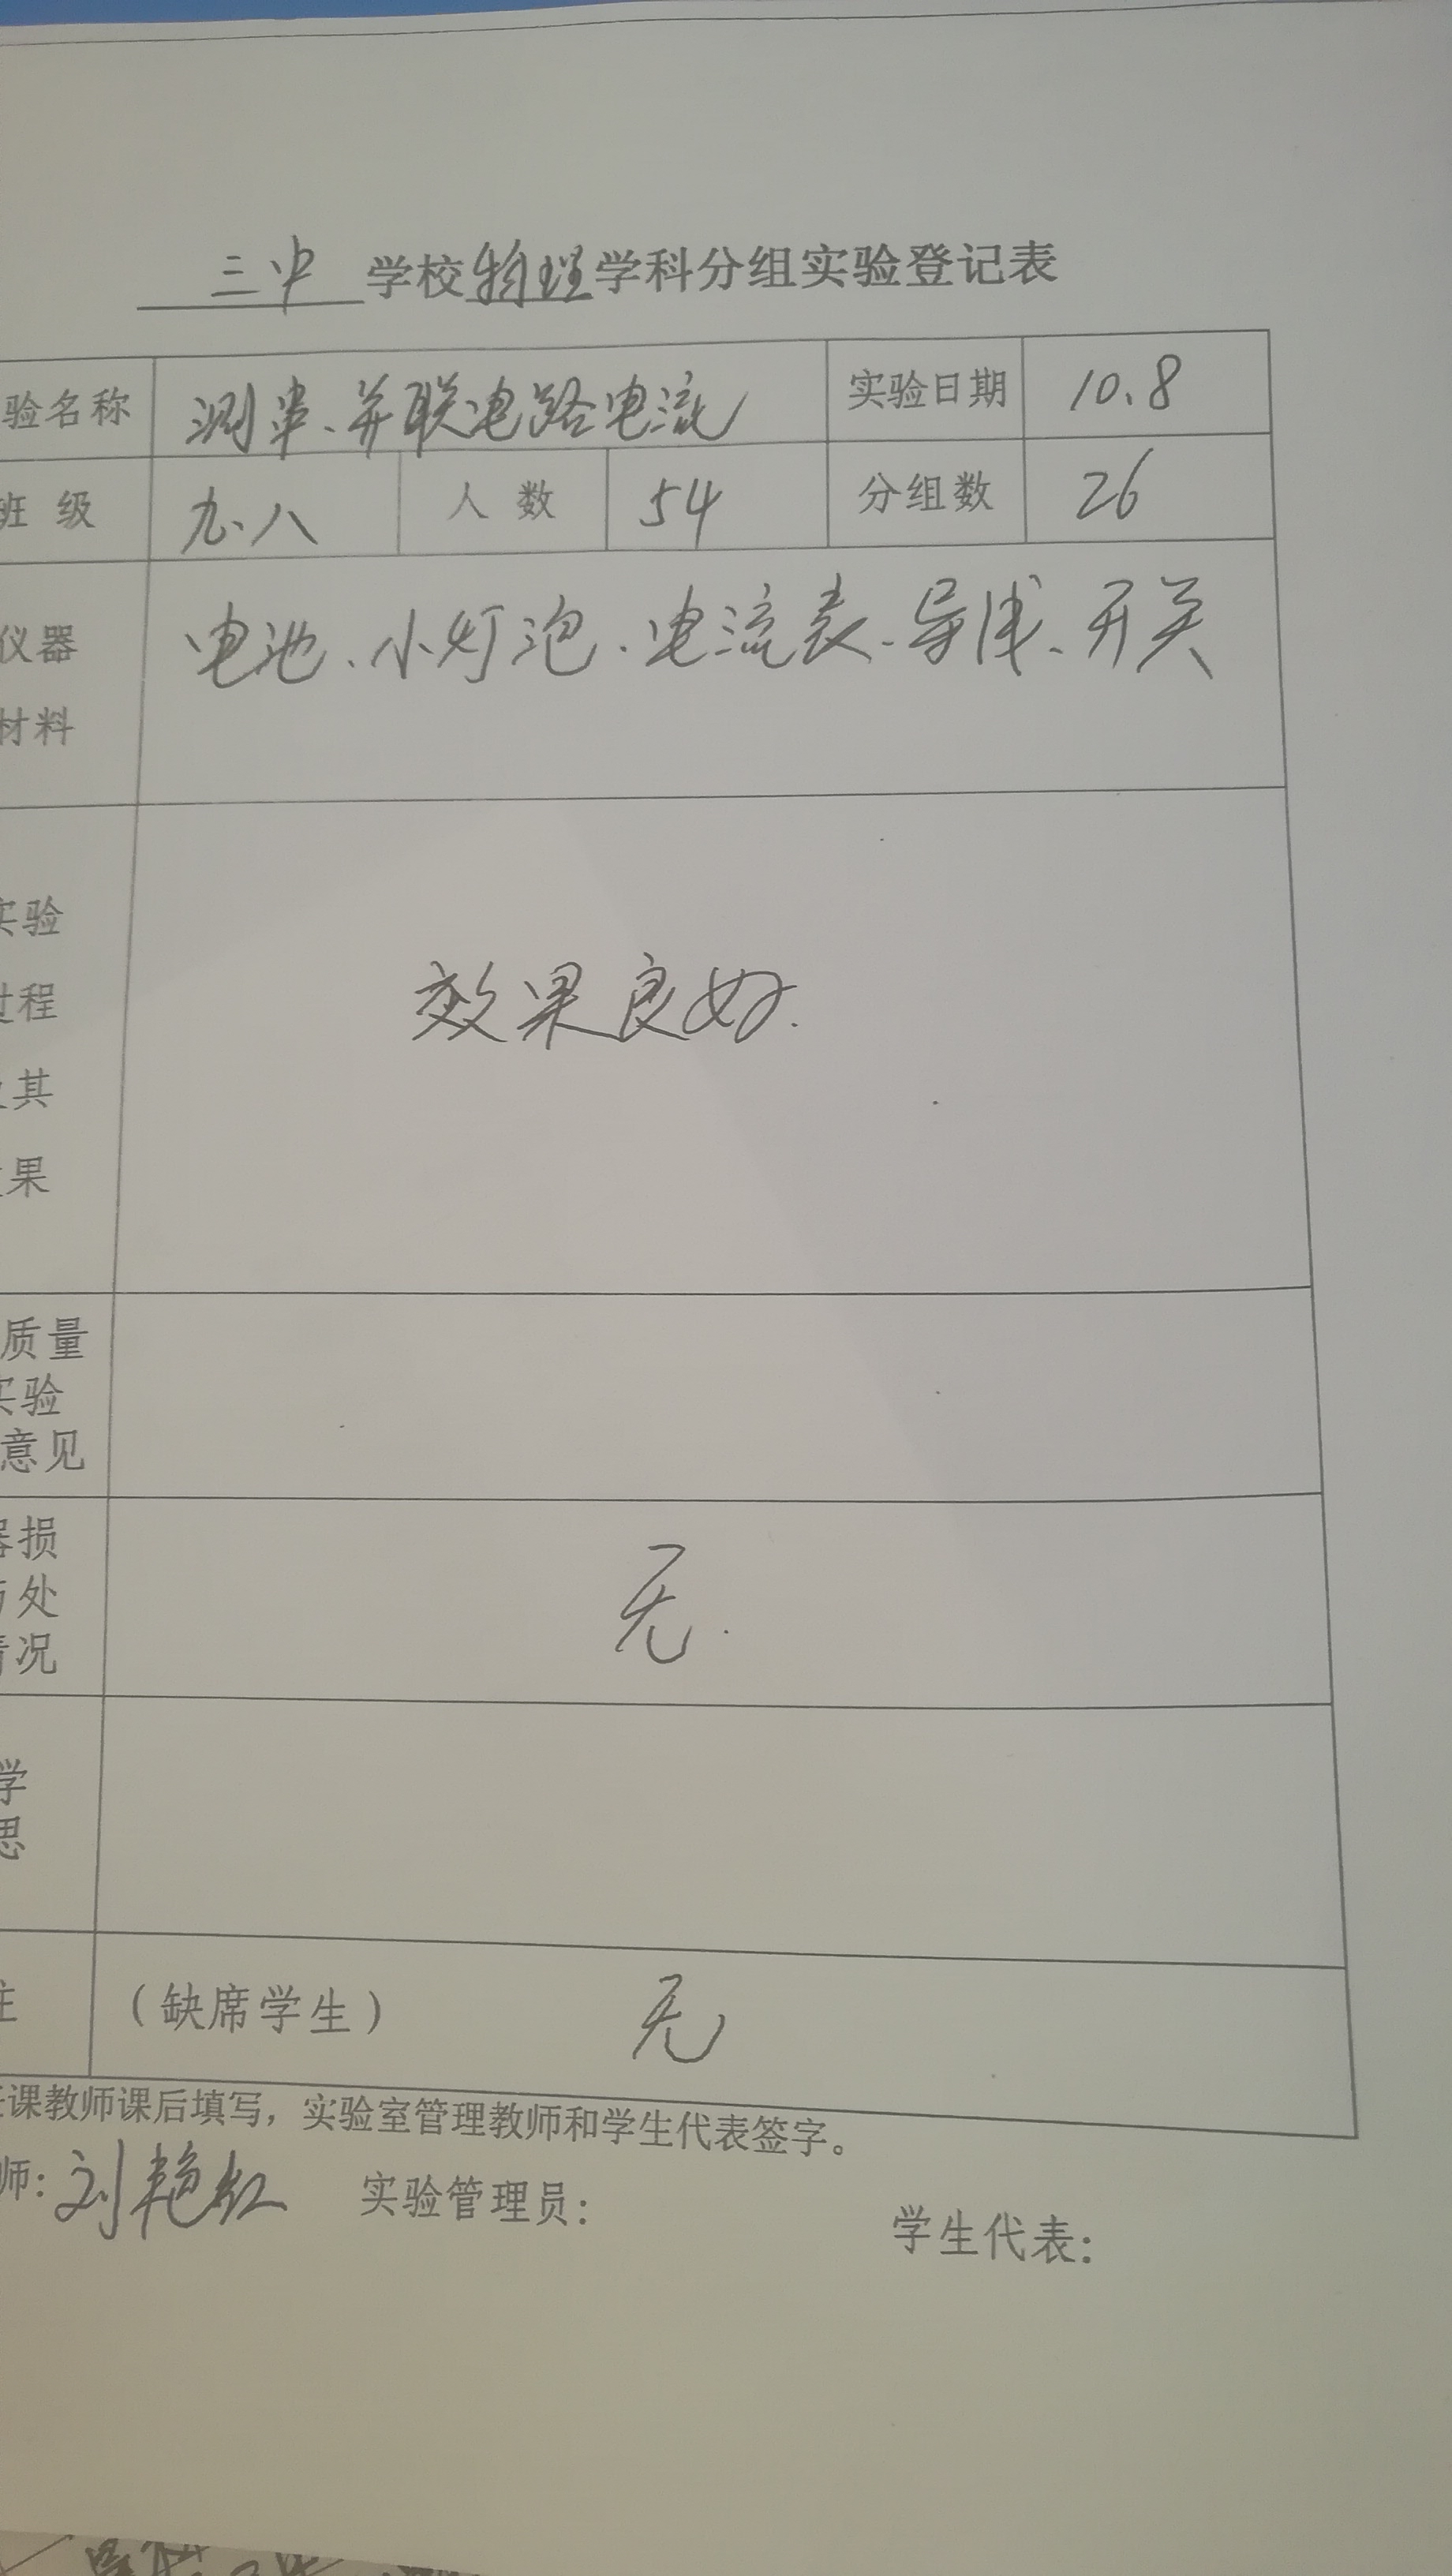 三中学校物理学科分组实验登记表
验名称 测串、并联电路电流 实验日期 10.8
班级 九.八 人数 54 分组数 26
仪器 电池、小灯泡、电流表、导线、开关
材料
实验
过程 效果良好.
其
果
质量
实验
意见
器损
处 无.
情况
学
思
注 (缺席学生) 无
课教师课后填写，实验室管理教师和学生代表签字。
师：刘艳红 实验管理员： 学生代表：